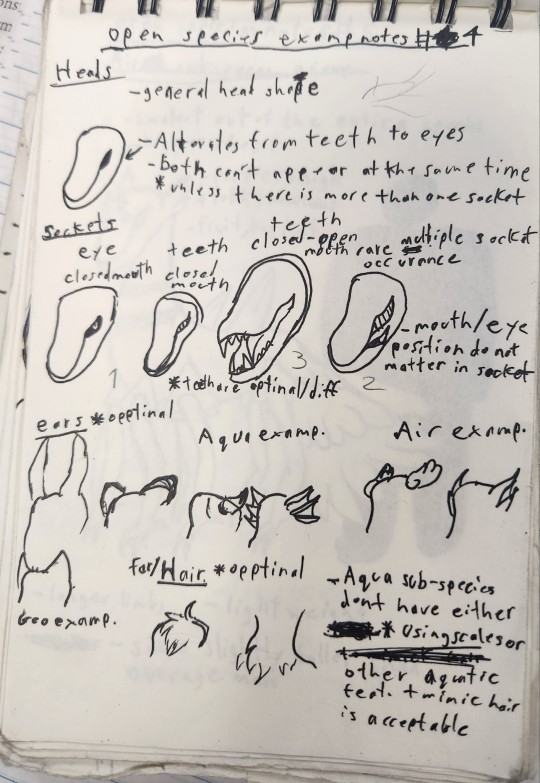 open species examp notes # 4
Heads
-general head shape
-Alterates from teeth to eyes
-both can't appear at the same time
*unless there is more than one socket
Sockets
eye
closed mouth
teeth
closed mouth
teeth
closed-open
mouth
rare multiple socket
occurance
-mouth/eye
position do not
matter in socket
1
3
2
*teeth are optinal/diff
ears *opptinal
Aqua examp.
Air examp.
Geo examp.
for/Hair *opptinal
-Aqua sub-species
dont have either
* Using scales or
other aquatic
feat. + mimic hair
is acceptable